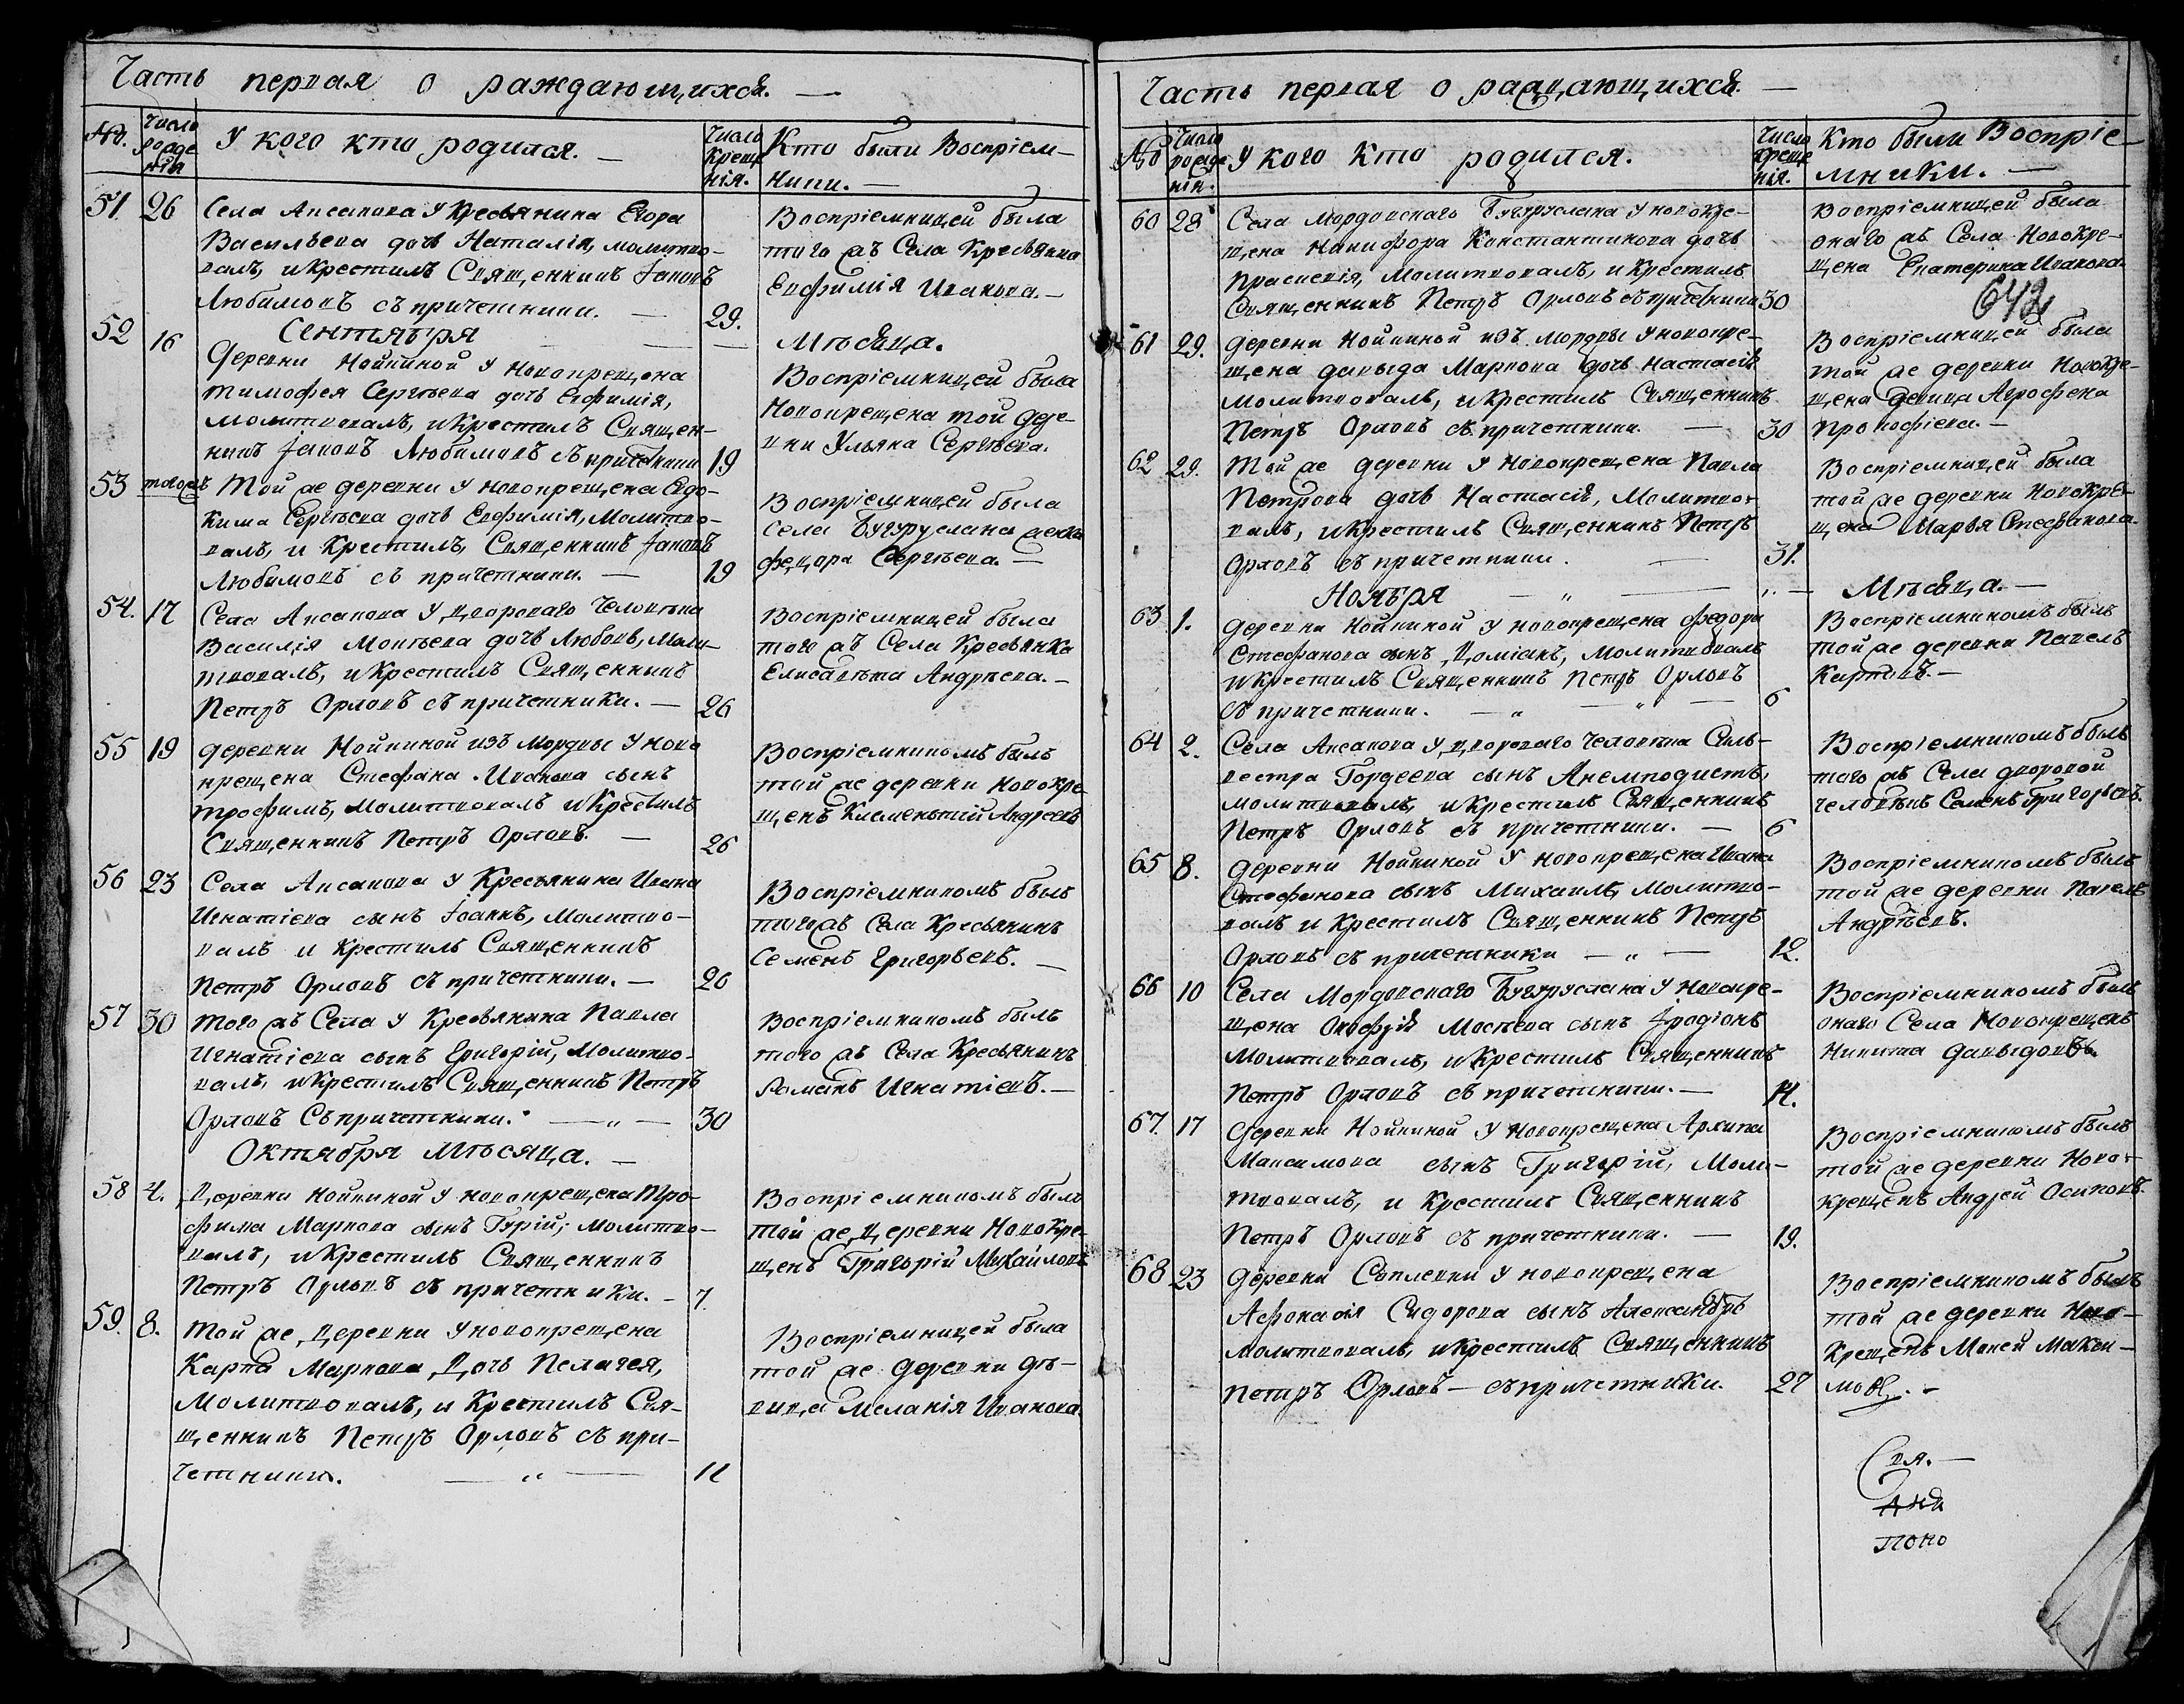 Часть первая о раждающихся. —
№.
Число рожде нія
У кого кто родился. —
Число Креще нія.
Кто были Воспріем-
ники. —
51. 26 Села Аксакова У Кресьянина Егора
Васильева дочь Наталія, молитво-
валъ, и Крестилъ Священникъ Iаковъ
Любимовъ съ причетники. — 29.
Воспріемницей была
того жъ Села Кресьянка
Евфимія Иванова. —
Сентября — — — Мѣсяца.
52 16 Деревни Нойкиной У новокрещена
Тимофея Сергѣева дочь Евфимія,
молитвовалъ, и Крестилъ Священ-
никъ Iаковъ Любимовъ съ причетники 19
Воспріемницей была
Новокрещена той дере-
вни Ульяна Сергѣева.
53 тогожъ Той же деревни У новокрещена Евдо-
кима Сергѣева дочь Евфимія, Молитво-
валъ, и Крестилъ, Священникъ Iаковъ
Любимовъ съ причетники. — 19
Воспріемницей была
Села Бугуруслана женка
федора Сергѣева. —
54. 17 Села Аксакова У дворова­го Человѣка
Василія Мокѣева дочь Любовь, Моли-
твовалъ, и Крестилъ Священникъ
Петръ Орловъ съ причетники. — 26
Воспріемницей была
того жъ Села Кресьянка
Елисавета Андрѣева. —
55 19 деревни Нойкиной изъ Мордвы У ново
крещена Стефана Иванова сынъ
Трофимъ, молитвовалъ и Крестилъ
Священникъ Петръ Орловъ. — 26
Воспріемникомъ былъ
той же деревни Новокре-
щенъ Клементий Андреевъ
56 23 Села Аксакова У Кресьянина Ивана
Игнатіева сынъ Iоаннъ, молитво-
валъ и Крестилъ Священникъ
Петръ Орловъ съ причетники. — 26
Воспріемникомъ былъ
того жъ Села Кресьянинъ
Семенъ Григорьевъ. —
57 30 Того жъ Села У Кресьянина Павла
Игнатіева сынъ Григорій, Молитво-
валъ, и Крестилъ Священникъ Петръ
Орловъ Съ причетники. — „ — 30
Воспріемникомъ былъ
того жъ Села Кресьянинъ
Романъ Игнатіевъ. —
Октября Мѣсяца. —
58 4. Деревни Нойкиной У новокрещена Тро-
фима Маркова сынъ Гурій; молитво-
валъ, и Крестилъ Священникъ
Петръ Орловъ съ причетники. — 7.
Воспріемникомъ былъ
той же Деревни Новокре-
щенъ Григорій Михайловъ
59. 8. Той же Деревни У новокрещена
Карпа Маркова, Дочь Пелагея,
Молитвовалъ, и Крестилъ Свя-
щенникъ Петръ Орловъ съ при-
четники. — „ — 11
Воспріемницей была
той же деревни дѣ-
вица Меланія Иванова
Часть первая о раждающихся. —
№
Число рожде нія.
У кого Кто родился.
Число Креще нія.
Кто были Воспріе-
мники. —
60 28 Села Мордовскаго Бугуруслана У новокре-
щена Никифора Константинова дочь
Праскевія, Молитвовалъ, и Крестилъ
Священникъ Петръ Орловъ съ причетники 30
Воспріемницей была
онаго жъ Села Новокре-
щена Екатерина Иванова.
642
61 29. деревни Нойкиной изъ мордвы У новокре-
щена давыда Маркова дочь Настасія
молитвовалъ, и Крестилъ Священникъ
Петръ Орловъ съ причетники. — 30
Воспріемницей была
той же деревни Новокре-
щена девица Агрофена
Прокофіева. —
62 29. Той же деревни У Новокрещена Павла
Петрова дочь Настасія, Молитво-
валъ, и Крестилъ Священникъ Петръ
Орловъ съ причетники. — 31.
Воспріемницей была
той же деревни Новокре-
щена Марья Стефанова.
Ноября — „ — „ — Мѣсяца. —
63 1. деревни Нойкиной У новокрещена федора
Стефанова сынъ Доміанъ, Молитвовалъ
и Крестилъ Священникъ Петръ Орловъ
съ причетники. — „ — „ — 6
Воспріемникомъ былъ
той же деревни Павелъ
Карповъ. —
64 2. Села Аксакова У дворова­го Человѣка Силь-
вестра Гордеева сынъ Анемподистъ,
молитвовалъ, и Крестилъ Священникъ
Петръ Орловъ съ причетники. — 6
Воспріемникомъ былъ
того жъ Села дворовой
человѣкъ Семенъ Григорьевъ.
65 8. деревни Нойкиной У новокрещена Ивана
Стефанова сынъ Михаилъ, Молитво-
валъ и Крестилъ Священникъ Петръ
Орловъ съ причетники — „ — 12.
Воспріемникомъ былъ
той же деревни Павелъ
Андрѣевъ.
66 10 Села Мордовскаго Бугуруслана У Новокре-
щена Мосѣева сынъ Iродіонъ
молитвовалъ, и Крестилъ Священникъ
Петръ Орловъ съ причетники. — 14.
Воспріемникомъ былъ
онаго Села Новокрещенъ
Никита давыдовъ.
67. 17 деревни Нойкиной У Новокрещена Архипа
Максимова сынъ Григорій, Моли-
твовалъ, и Крестилъ Священникъ
Петръ Орловъ съ причетники. — 19.
Воспріемникомъ былъ
той же деревни Ново-
крещенъ Андрей Осиповъ.
68 23 деревни У новокрещена
Афонасія Сидорова сынъ Александръ
молитвовалъ, и Крестилъ Священникъ
Петръ Орловъ — съ причетники. 27
Воспріемникомъ былъ
той же деревни Ново-
Крещенъ Мокей Макси-
мовъ. —
Свя. —
Поно